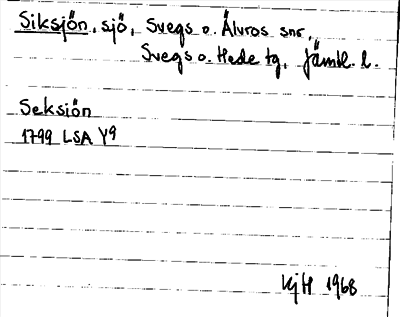 Siksjön, sjö, Svegs o. Älvros snr,
Svegs o. Hede tg, Jämtl. l.
Seksiön
1799 LSA Y9
KjH 1968